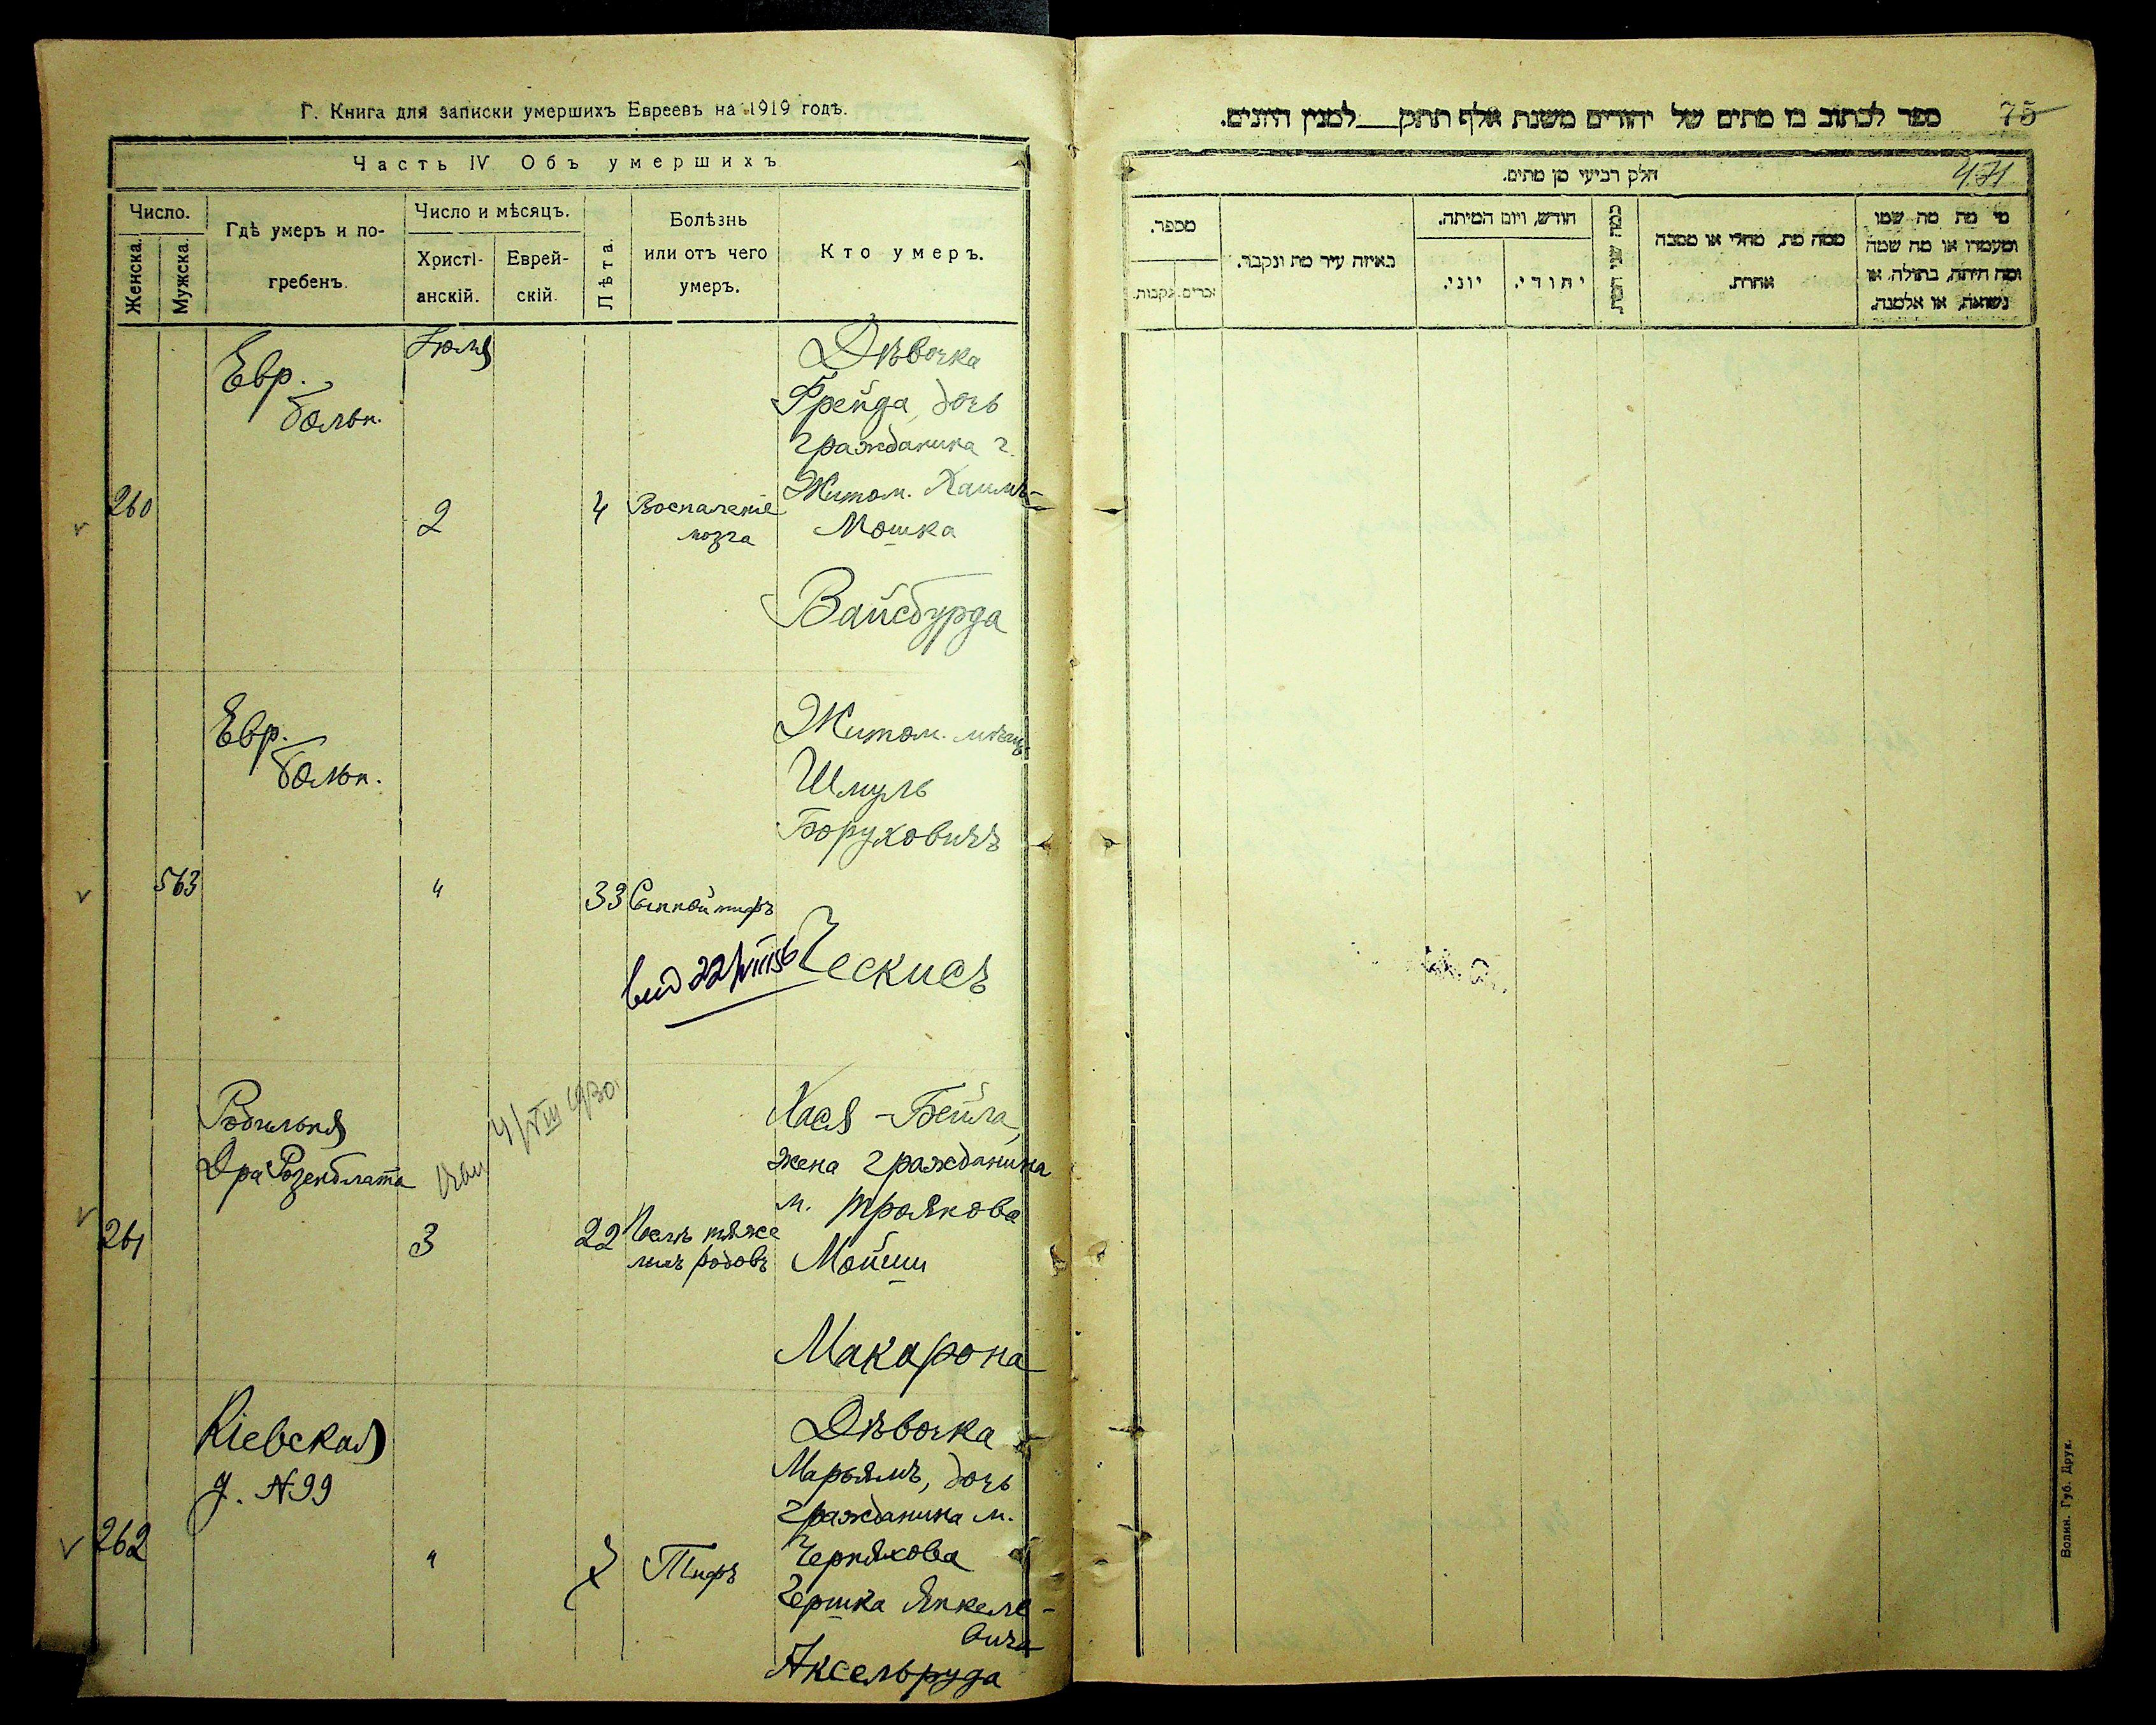 Г. Книга для записки умершихъ Евреевъ на 1919 годъ.
Часть IV Объ умершихъ
Число.
Женска.
Мужска.
Гдѣ умеръ и по-
гребенъ.
Число и мѣсяцъ.
Христі-
анскій.
Еврей-
скій.
Лѣта.
Болѣзнь
или отъ чего
умеръ.
Кто умеръ.
Евр.
больн.
Іюля
260
2
4
Воспаленіе
мозга
Дѣвочка
Фрейда дочь
гражданина г.
Житом. Хаимъ-
Мошка
Вайсбурда
Евр.
больн.
563
"
33
Сыпной тифъ
Житом. мѣщ.
Шмуль
Боруховичъ
Ческисъ
вид 22/VIII56
Родильня
Дра Розенблатта
4/VIII 1930
261
3
22
Послѣ тяже
лыхъ родовъ
Хася-Бейла,
жена гражданина
м. Троянова
Мойши
Макарона
Кіевская
д. №99
262
"
Тифъ
Дѣвочка
Марьямъ, дочь
гражданина м.
Черняхова
Гершка Янкеле-
вича
Аксельруда
ספר לכתוב בו מתים של יהודים משנת אלף תתק למנין היונים.
75
חלק רביעי מן מתים.
471
מספר.
זכרים.
נקבות.
באיזה עיר מת ונקבר.
חודש, ויום המיתה.
יוני.
יהודי.
כמה שני המת
ממה מת, מחלי או מסבה
אחרת.
מי מת מה שמו
ומעמדו או מה שמה
ומה היתה, בתולה, או
נשואה, או אלמנה.
Волин. Губ. Друк.